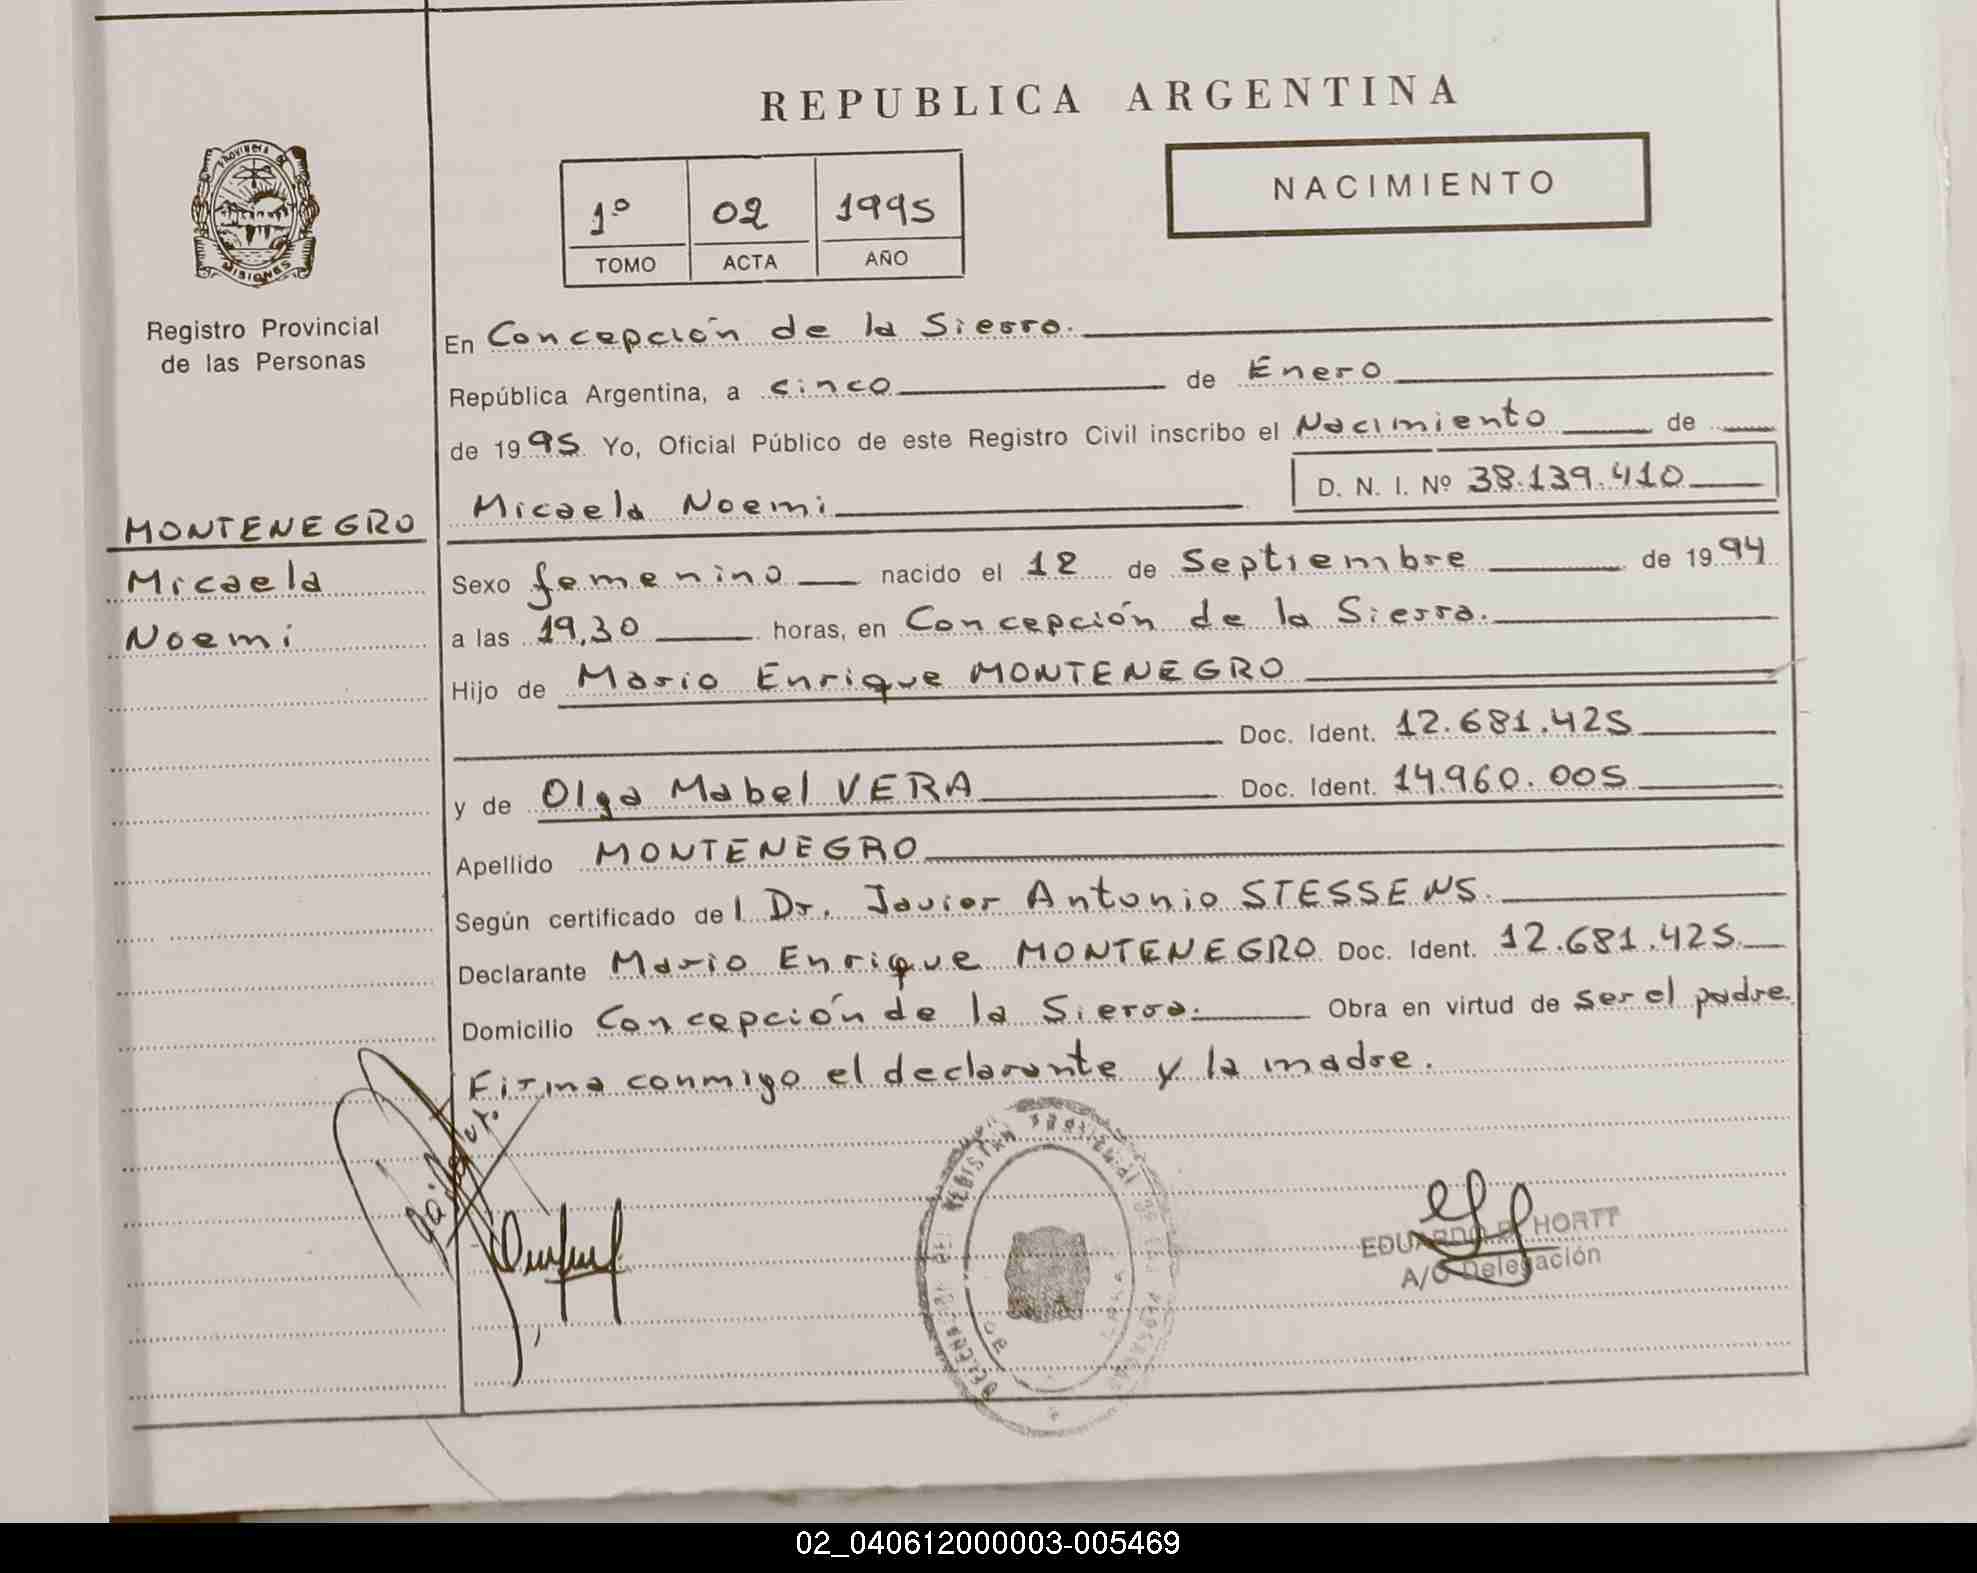 REPUBLICA ARGENTINA
NACIMIENTO
1º 02 1995
TOMO ACTA AÑO
PROVINCIA DE
MISIONES
Registro Provincial
de las Personas
MONTENEGRO
Micaela
Noemi
En Concepción de la Sierra.
República Argentina, a cinco de Enero
de 1995 Yo, Oficial Público de este Registro Civil inscribo el Nacimiento de
Micaela Noemi D. N. I. Nº 38.139.410
Sexo femenino nacido el 12 de Septiembre de 1994
a las 19,30 horas, en Concepción de la Sierra.
Hijo de Mario Enrique MONTENEGRO
Doc. Ident. 12.681.425
y de Olga Mabel VERA Doc. Ident. 14.960.005
Apellido MONTENEGRO
Según certificado del Dr. Javier Antonio STESSENS.
Declarante Mario Enrique MONTENEGRO Doc. Ident. 12.681.425.
Domicilio Concepción de la Sierra. Obra en virtud de ser el padre.
Firma conmigo el declarante y la madre.
EDUARDO HORTT
A/C Delegación
02_040612000003-005469